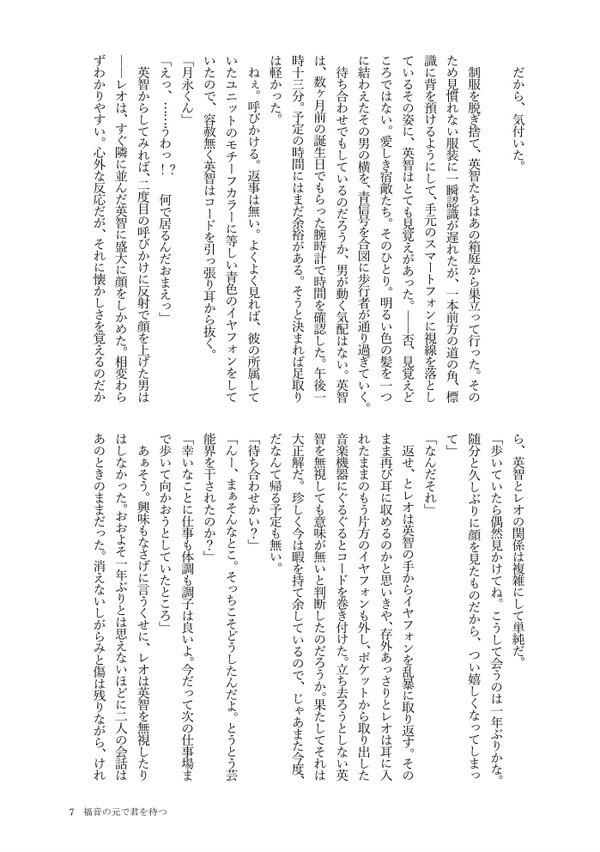 だから、気付いた。
制服を脱ぎ捨て、英智たちはあの箱庭から巣立って行った。その
ため見慣れない服装に一瞬認識が遅れたが、一本前方の道の角、標
識に背を預けるようにして、手元のスマートフォンに視線を落とし
ているその姿に、英智はとても見覚えがあった。――否、見覚えど
ころではない。愛しき宿敵たち。そのひとり。明るい色の髪を一つ
に結わえたその男の横を、青信号を合図に歩行者が通り過ぎていく。
待ち合わせでもしているのだろうか、男が動く気配はない。英智
は、数ヶ月前の誕生日でもらった腕時計で時間を確認した。午後一
時十三分。予定の時間にはまだ余裕がある。そうと決まれば足取り
は軽かった。
ねぇ。呼びかける。返事は無い。よくよく見れば、彼の所属して
いたユニットのモチーフカラーに等しい青色のイヤフォンをして
いたので、容赦無く英智はコードを引っ張り耳から抜く。
「月永くん」
「えっ、……うわっ！？　何で居るんだおまえっ」
英智からしてみれば、二度目の呼びかけに反射で顔を上げた男は
――レオは、すぐ隣に並んだ英智に盛大に顔をしかめた。相変わら
ずわかりやすい。心外な反応だが、それに懐かしさを覚えるのだか
ら、英智とレオの関係は複雑にして単純だ。
「歩いていたら偶然見かけてね。こうして会うのは一年ぶりかな。
随分と久しぶりに顔を見たものだから、つい嬉しくなってしまっ
て」
「なんだそれ」
返せ、とレオは英智の手からイヤフォンを乱暴に取り返す。その
まま再び耳に収めるのかと思いきや、存外あっさりとレオは耳に入
れたままのもう片方のイヤフォンも外し、ポケットから取り出した
音楽機器にぐるぐるとコードを巻き付けた。立ち去ろうとしない英
智を無視しても意味が無いと判断したのだろうか。果たしてそれは
大正解だ。珍しく今は暇を持て余しているので、じゃあまた今度、
だなんて帰る予定も無い。
「待ち合わせかい？」
「んー、まぁそんなとこ。そっちこそどうしたんだよ。とうとう芸
能界を干されたのか？」
「幸いなことに仕事も体調も調子は良いよ。今だって次の仕事場ま
で歩いて向かおうとしていたところ」
あぁそう。興味もなさげに言うくせに、レオは英智を無視したり
はしなかった。おおよそ一年ぶりとは思えないほどに二人の会話は
あのときのままだった。消えないしがらみと傷は残りながら、けれ
7　福音の元で君を待つ